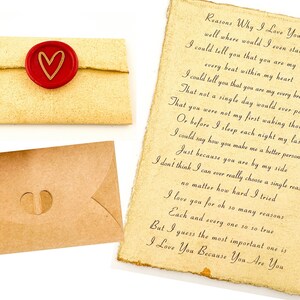 Reasons Why I Love You
well where would I even sta
I could tell you that you are my
every beat within my heart
I could tell you that you are my every brea
That not a single day would ever p
That you were not my first waking thou
Or before I sleep each night my la
I could say how you make me a better person
Just because you are by my side
I don't think I can ever really choose a single rea
no matter how hard I tried
I love you for oh so many reasons
Each and every one so so true
But I guess the most important one is
I Love You Because You Are You